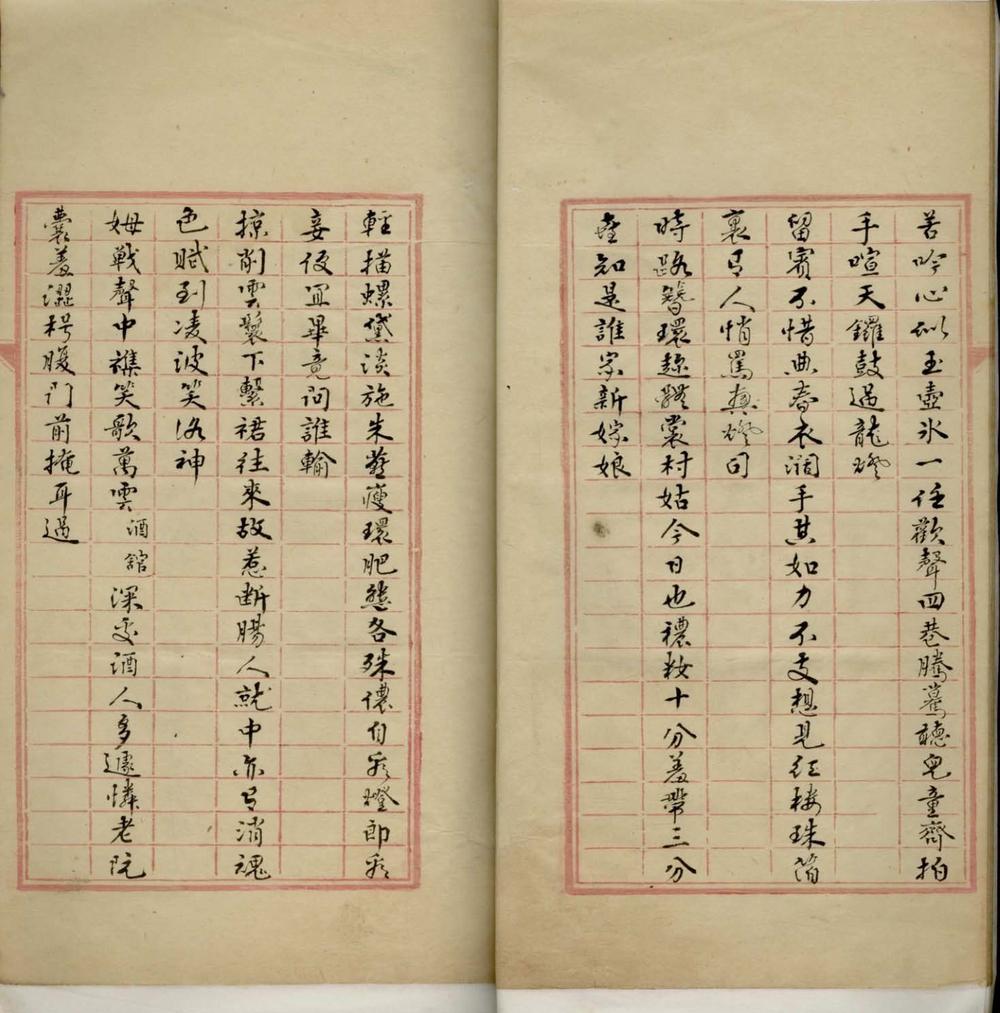 苦吟心似玉壺冰一任歡聲四巷騰驀聽兒童齊拍
手喧天鑼鼓過龍燈
留賓不惜典春衣濶手其如力不支想見紅樓珠箔
裏有人悄罵燈司
時路簪環趂體裳村姑今日也穠妝十分羞帶三分
喜知是誰家新嫁娘
輕描螺黛淡施朱燕瘦環肥態各殊儂自看燈郎看
妾便宜畢竟問誰輸
掠削雲鬟下繫裙往來故惹斷腸人就中亦有消魂
色賦到凌波笑洛神
姆戰聲中襍笑歌萬雲酒館深處酒人多遽憐老阮
囊羞澀枵腹門前掩耳過